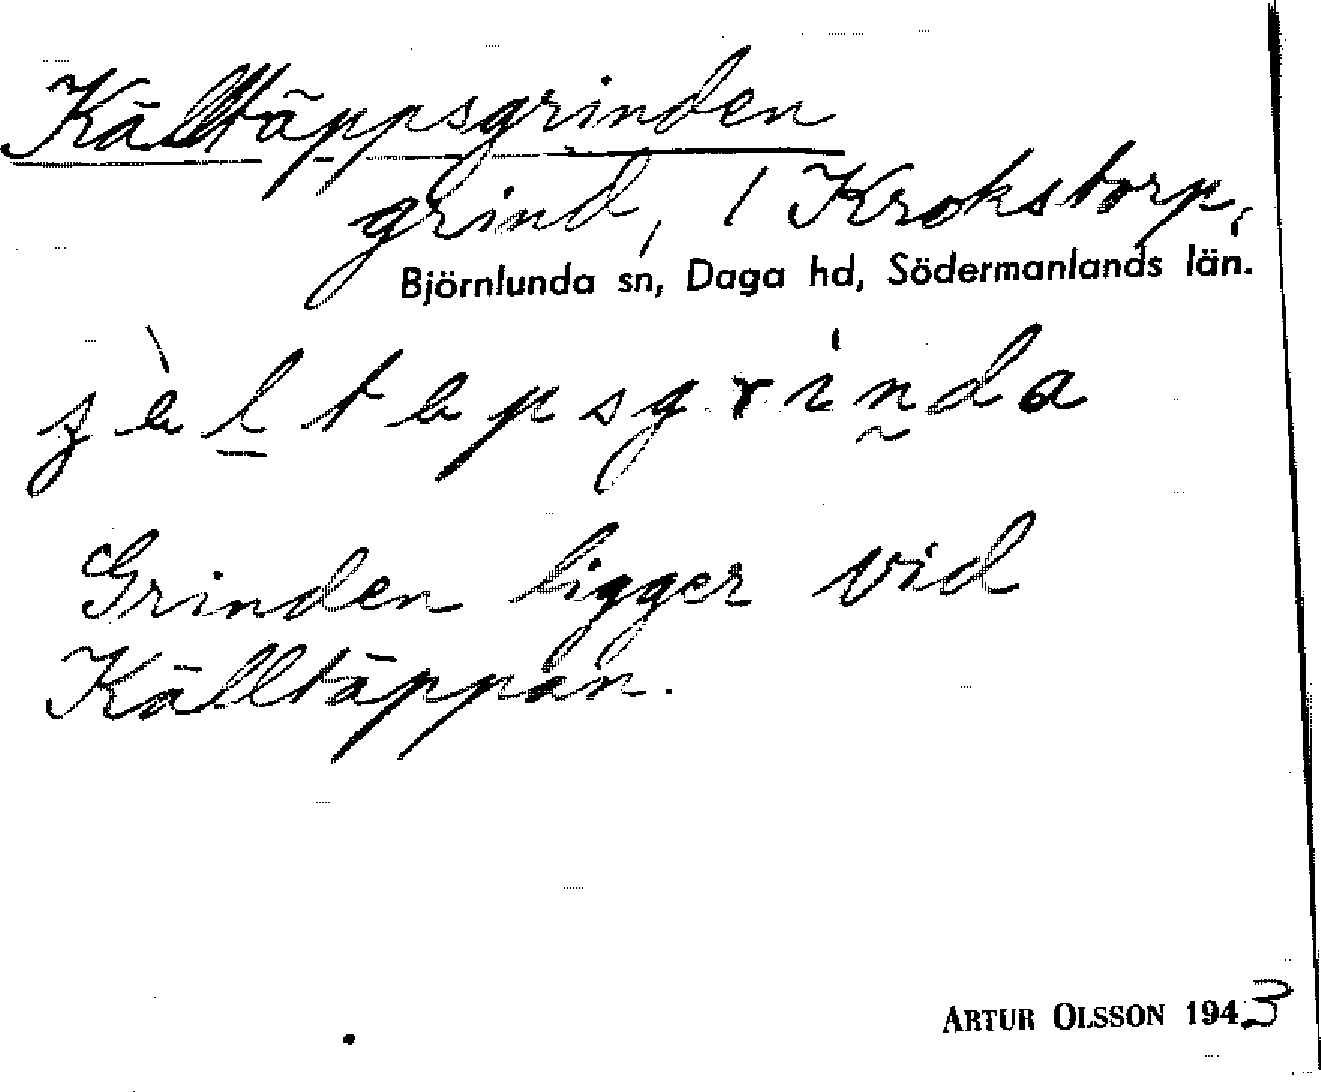 Källtäppsgrinden
grind, / Krokstorp,
Björnlunda sn, Daga hd, Södermanlands län.
Grinden ligger vid
Källtäppan.
ARTUR OLSSON 1943